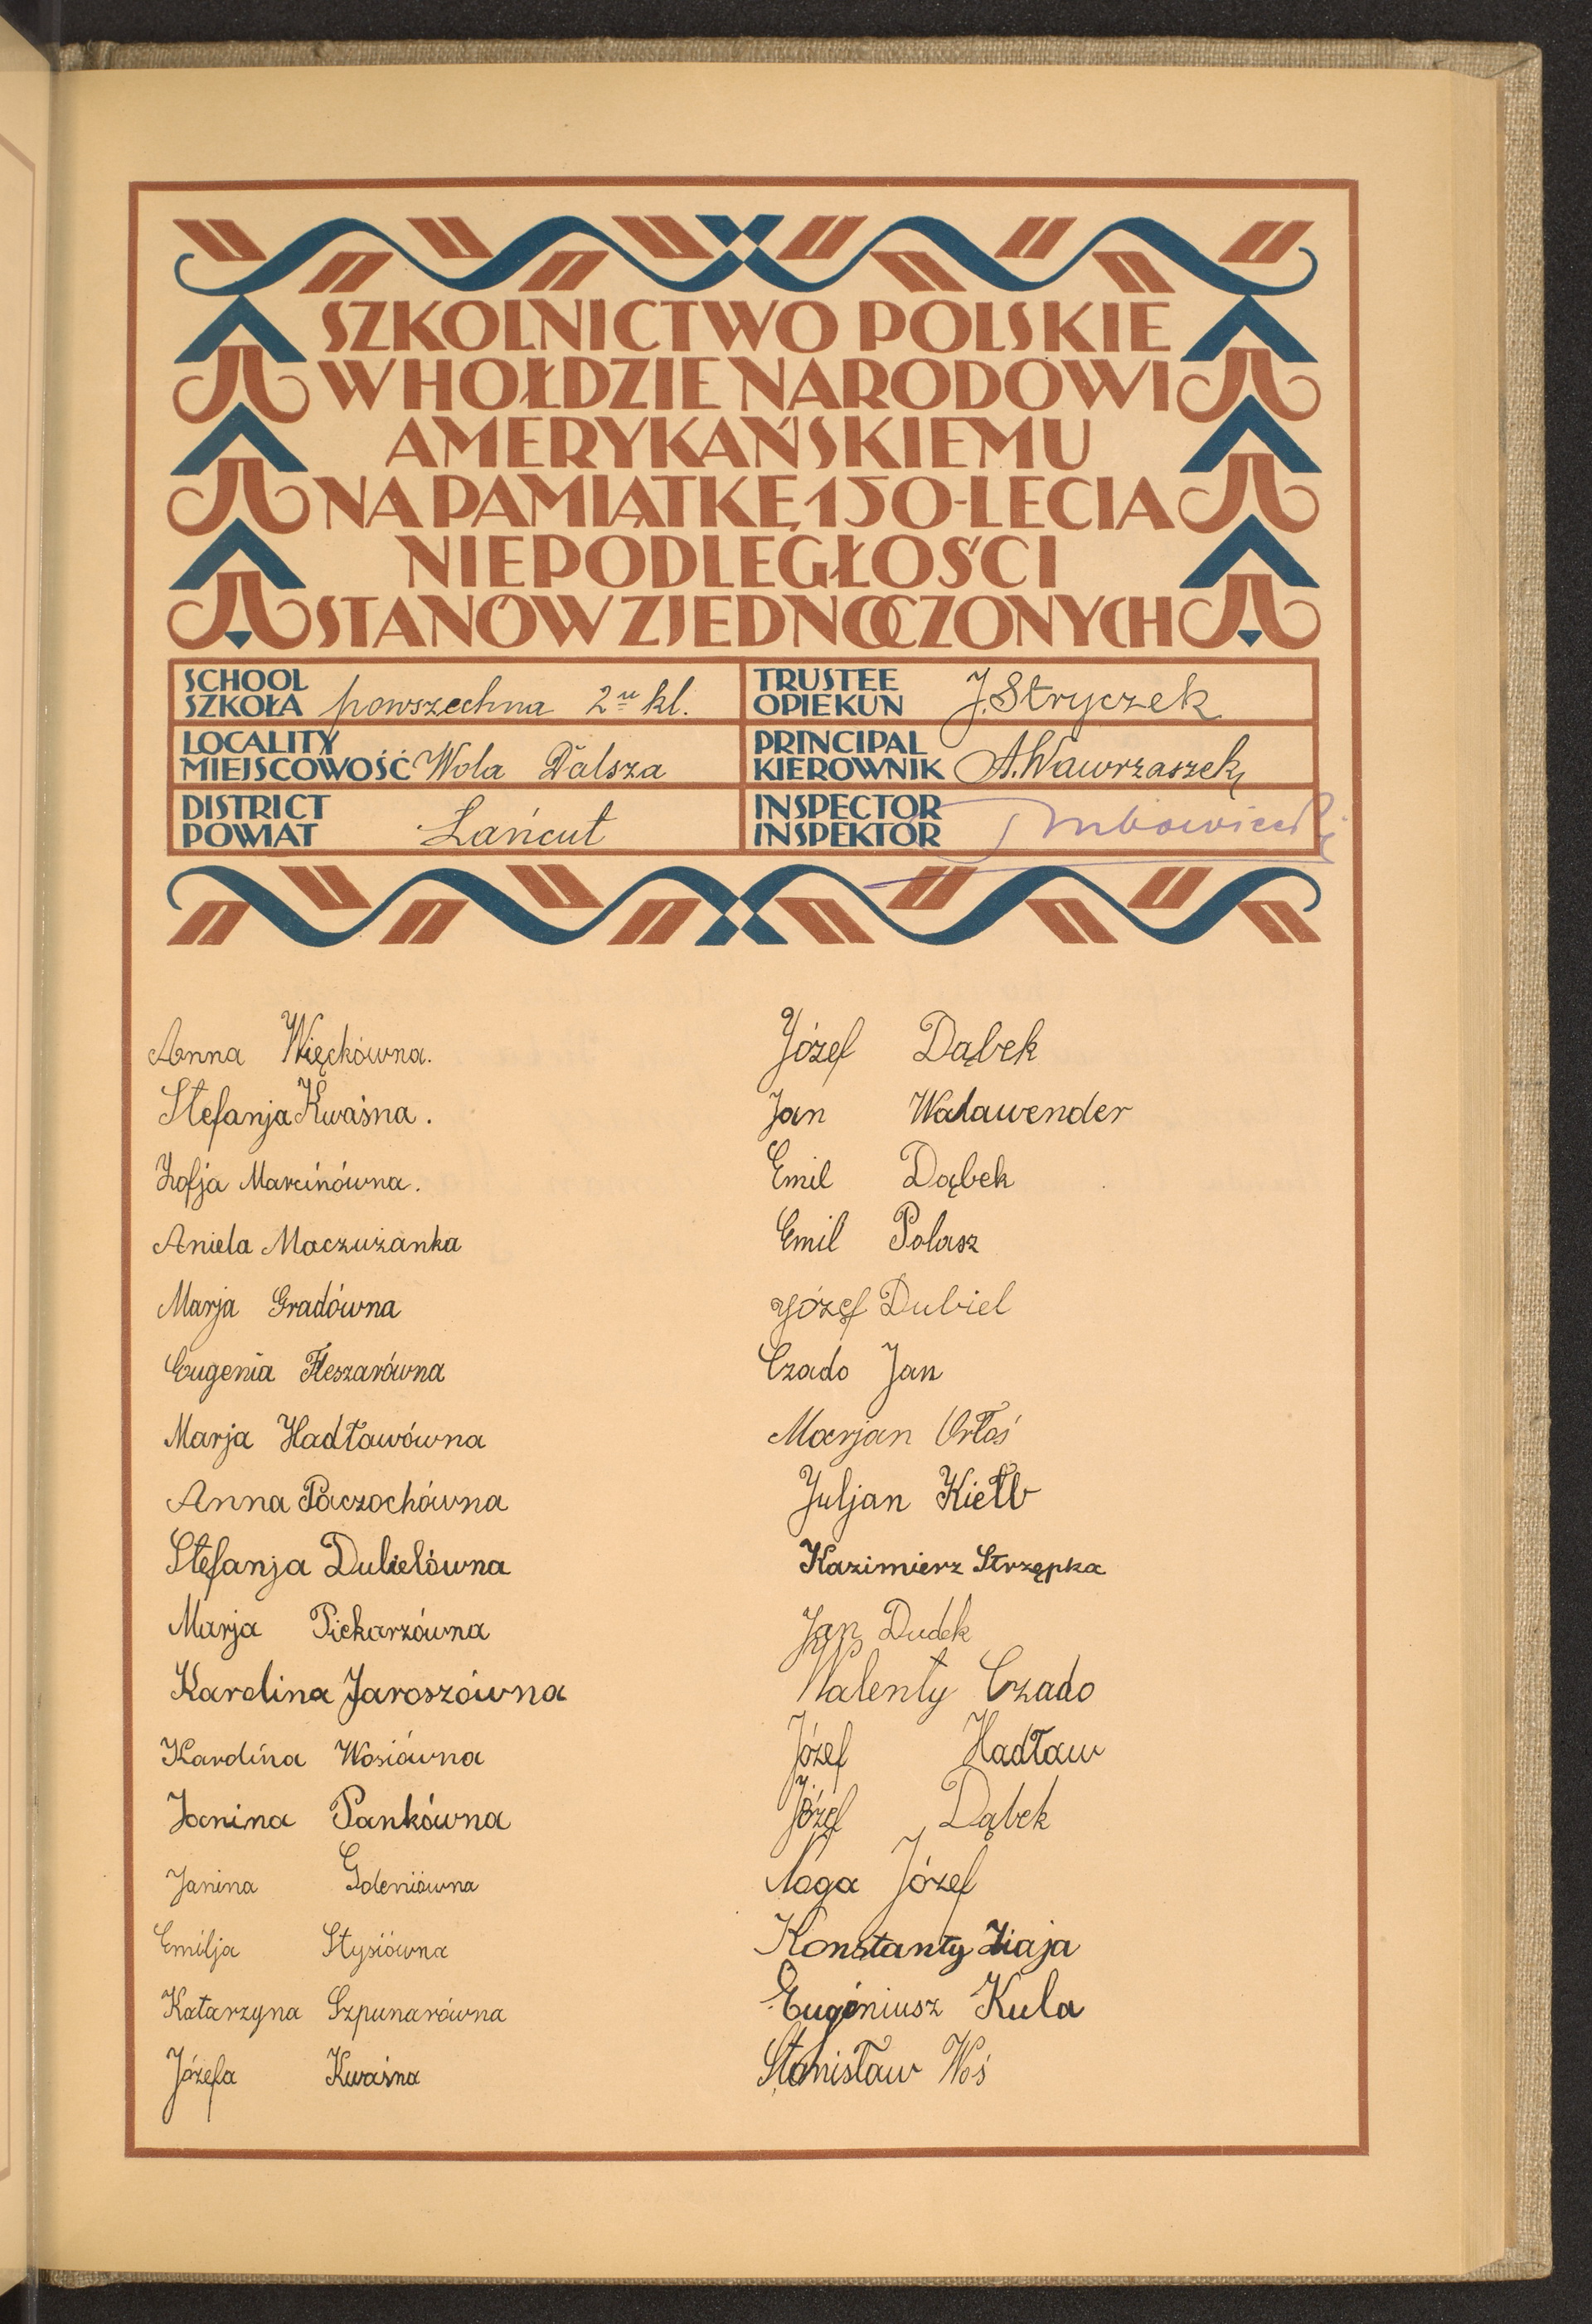 SZKOLNICTWO POLSKIE
W HOŁDZIE NARODOWI
AMERYKAŃSKIEMU
NA PAMIĄTKĘ 150-LECIA
NIEPODLEGŁOŚCI
STANÓW ZJEDNOCZONYCH
SCHOOL
SZKOŁA powszechna 2 u kl.
TRUSTEE
OPIEKUN J. Stryczek
LOCALITY
MIEJSCOWOŚĆ Wola Dalsza
PRINCIPAL
KIEROWNIK A. Wawrzaszek
DISTRICT
POWIAT Łańcut
INSPECTOR
INSPEKTOR
Anna Więckówna.
Stefanja Kwaśna.
Zofja Marcinówna.
Aniela Maczużanka
Marja Gradówna
Eugenia Fleszarówna
Marja Hadławówna
Anna Paczochówna
Stefanja Dubielówna
Marja Piekarzówna
Karolina Jaroszówna
Karolina Wosiówna
Janina Pankówna
Janina Goleniówna
Emilja Stysiówna
Katarzyna Szpunarówna
Józefa Kwaśna
Józef Dąbek
Jan Walawender
Emil Dąbek
Emil Polasz
Józef Dubiel
Czado Jan
Marjan Orłoś
Juljan Kiełb
Kazimierz Strzępka
Jan Dudek
Walenty Czado
Józef Hadław
Józef Dąbek
Naga Józef
Konstanty Ziaja
Eugéniusz Kula
Stanisław Woś